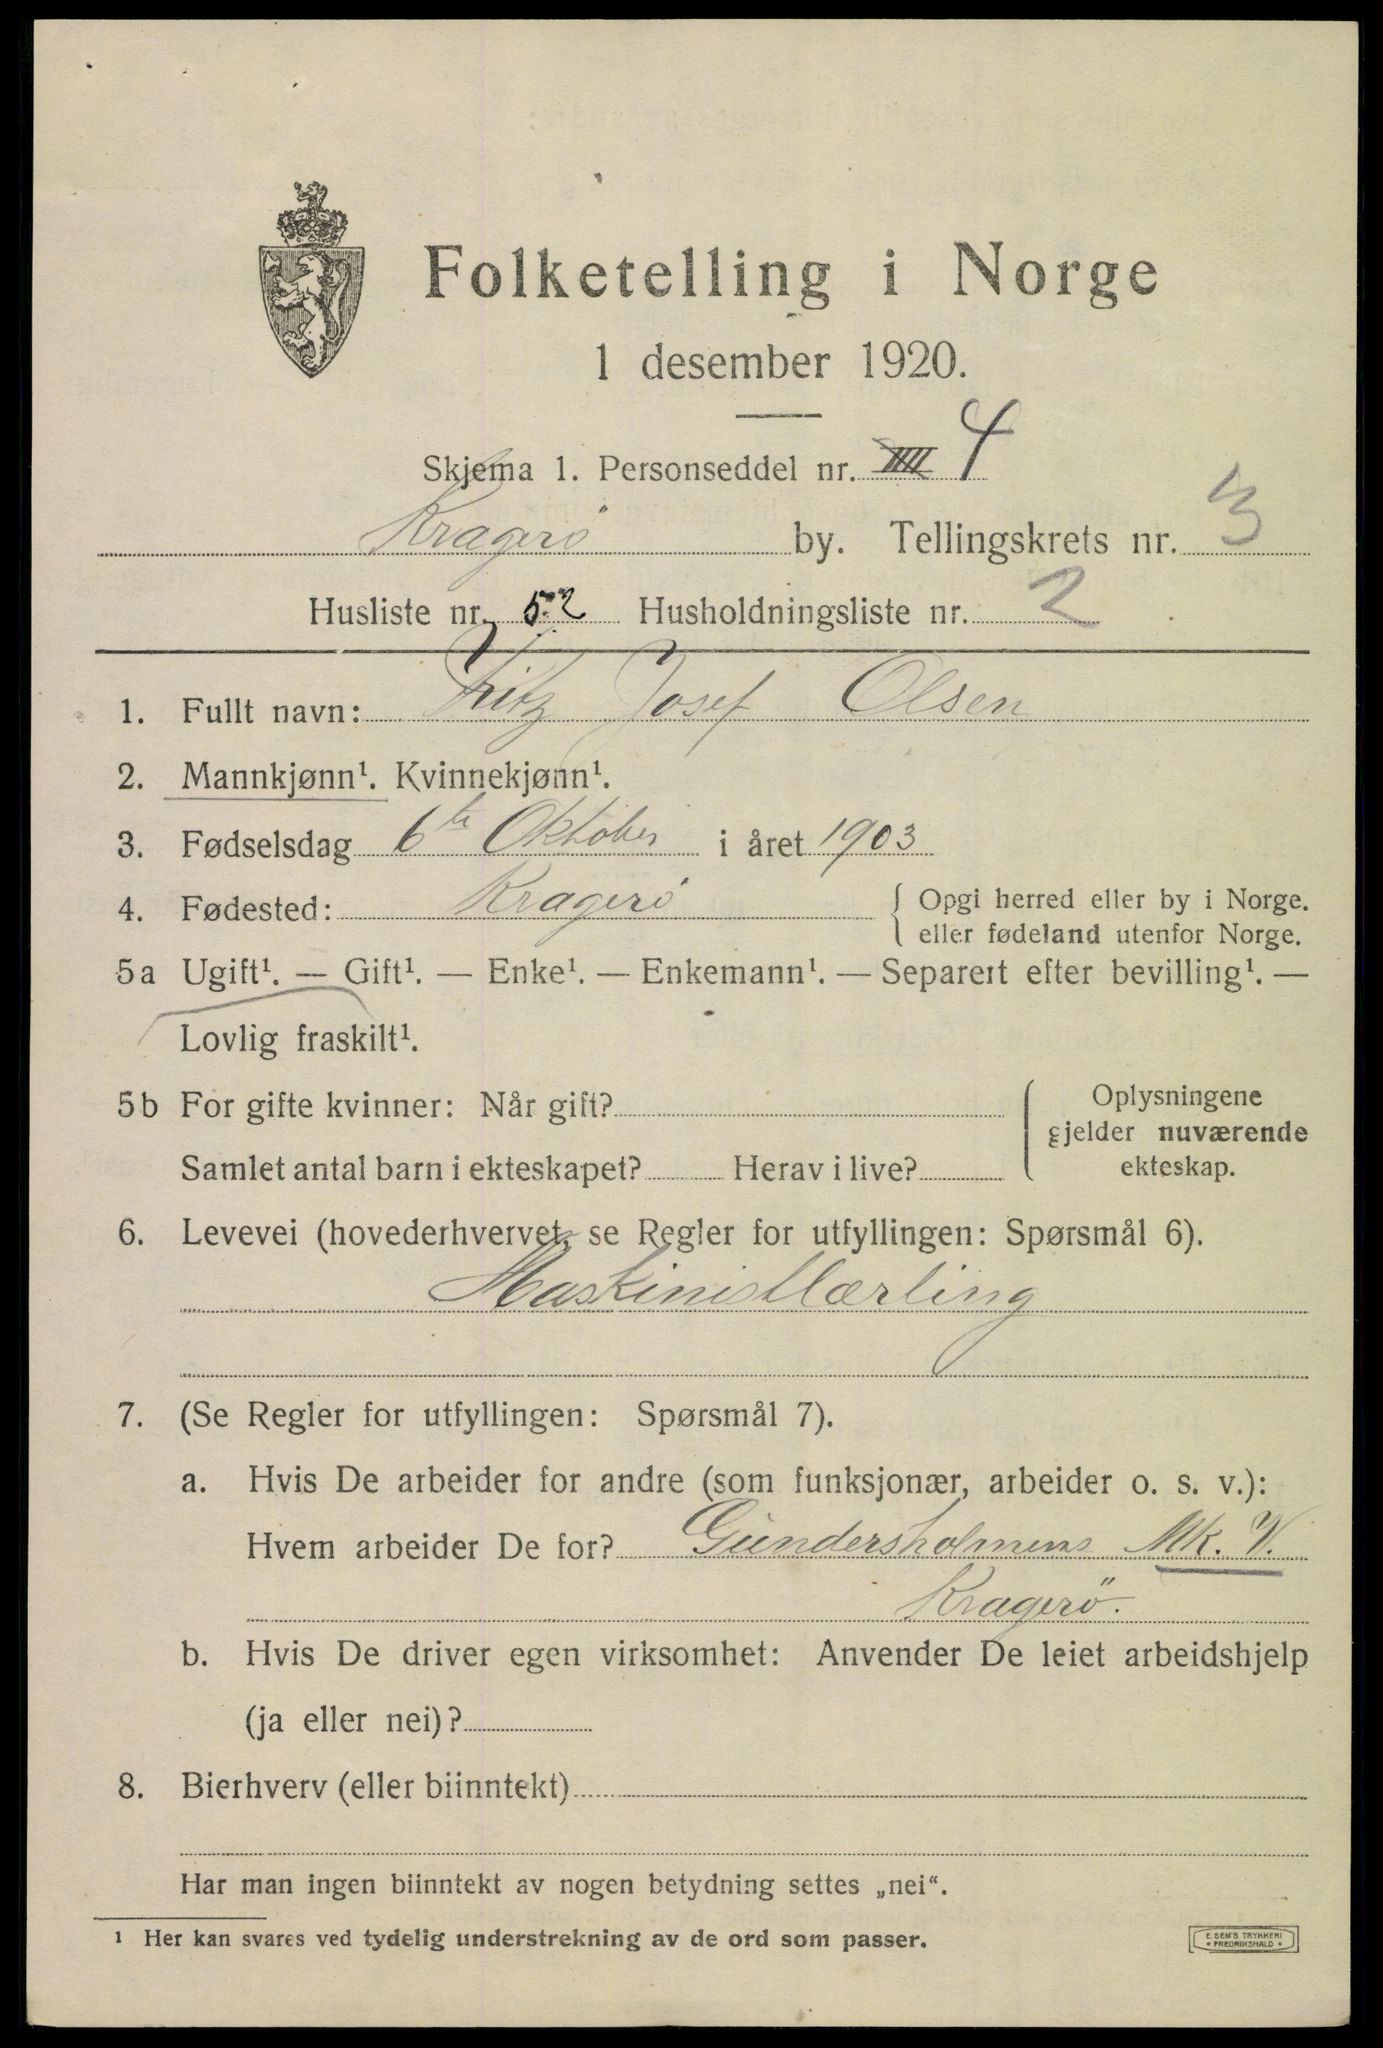 Folketelling i Norge
1 desember 1920.
Skjema 1. Personseddel nr. 4
Kragerö by. Tellingskrets nr. 3
Husliste nr. 52 Husholdningsliste nr. 2
1. Fullt navn: Fritz Josef Olsen
2. Mannkjønn¹. Kvinnekjønn¹.
3. Fødselsdag 6te Oktober i året 1903
4. Fødested: Kragerö { Opgi herred eller by i Norge.
eller fødeland utenfor Norge.
5a Ugift¹. — Gift¹. — Enke¹. — Enkemann¹. — Separert efter bevilling¹. —
Lovlig fraskilt¹.
5b For gifte kvinner: Når gift? { Oplysningene
gjelder nuværende
Samlet antal barn i ekteskapet? Herav i live? ekteskap.
6. Levevei (hovederhvervet, se Regler for utfyllingen: Spørsmål 6).
Maskinistlærling
7. (Se Regler for utfyllingen: Spørsmål 7).
a. Hvis De arbeider for andre (som funksjonær, arbeider o. s. v.):
Hvem arbeider De for? Gundersholmens Mk. V.
Kragerö.
b. Hvis De driver egen virksomhet: Anvender De leiet arbeidshjelp
(ja eller nei)?
8. Bierhverv (eller biinntekt)
Har man ingen biinntekt av nogen betydning settes „nei“.
¹ Her kan svares ved tydelig understrekning av de ord som passer.
E. SEM'S TRYKKERI
• FREDRIKSHALD •